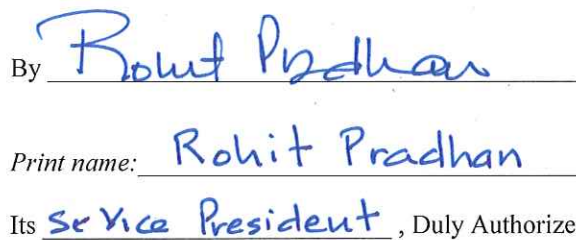 By Rohit Pradhan
Print name: Rohit Pradhan
Its Sr Vice President, Duly Authorize